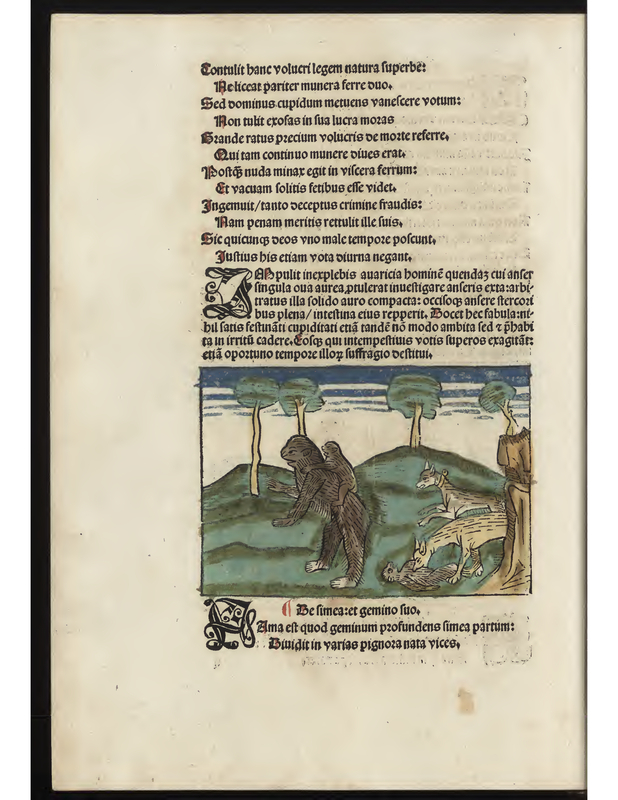 Contulit hanc volucri legem natura superbe:
Ne liceat pariter munera ferre duo.
Sed dominus cupidum metuens vanescere votum:
Non tulit exosas in sua lucra moras
Grande ratus precium volucris de morte referre,
Qui tam continuo munere diues erat.
Postꝙ nuda minax egit in viscera ferrum:
Et vacuam solitis fetibus esse videt.
Ingemuit/tanto deceptus crimine fraudis:
Nam penam meritis rettulit ille suis.
Sic quicunꝙ deos vno male tempore poscunt,
Justius his etiam vota diurna negant.
IMpulit inexplebis auaricia hominē quendaꝫ cui anser
singula oua aurea ꝓtulerat inuestigare anseris exta: arbi-
tratus illa solido auro compacta: occisoꝙ ansere stercori
bus plena/ intestina eius repperit. Docet hec fabula: ni-
hil satis festināti cupiditati etiā tandē nō modo ambita sed ⁊ p̄habi
ta in irritū cadere. Eosꝙ qui intempestiuis votis superos exagitāt:
etiā oportuno tempore illoꝝ suffragio destitui.
¶ De simea: et gemino suo.
FAma est quod geminum profundens simea partum:
Diuidit in varias pignora nata vices.